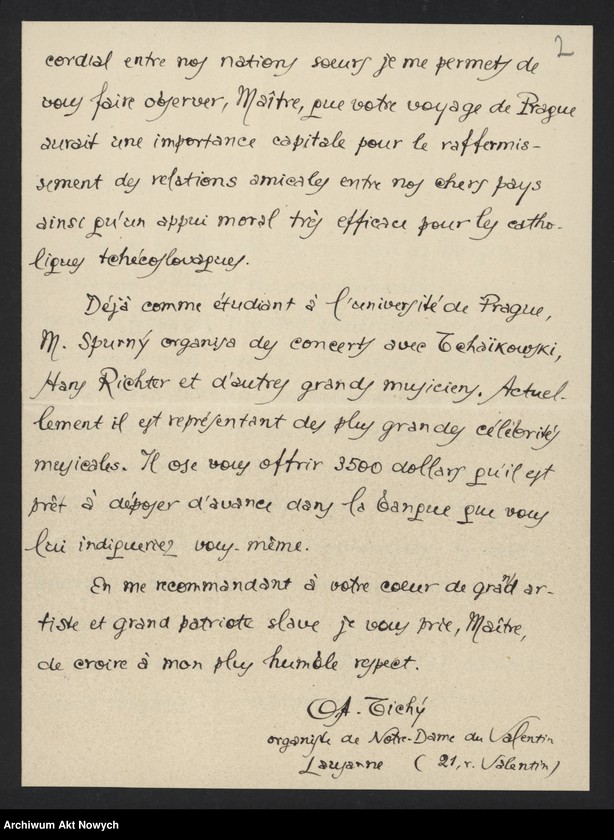 2
cordial entre nos nations sœurs je me permets de
vous faire observer, Maître, que votre voyage de Prague
aurait une importance capitale pour le raffermis-
sement des relations amicales entre nos chers pays
ainsi qu'un appui moral très efficace pour les catho-
liques tchécoslovaques.
Déjà comme étudiant à l'université de Prague,
M. Spurný organisa des concerts avec Tchaïkowski,
Hans Richter et d'autres grands musiciens. Actuel-
lement il est représentant des plus grandes célébrités
musicales. Il ose vous offrir 3500 dollars qu'il est
prêt à déposer d'avance dans la banque que vous
lui indiqueriez vous-même.
En me recommandant à votre cœur de grand ar-
tiste et grand patriote slave je vous prie, Maître,
de croire à mon plus humble respect.
A. Tichý
organiste de Notre-Dame du Valentin
Lausanne (21, r. Valentin)
Archiwum Akt Nowych